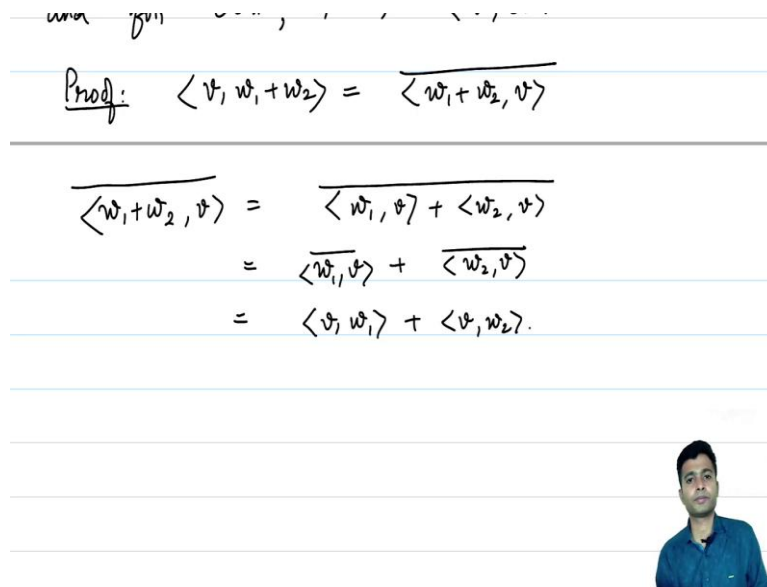 and
Proof: ⟨v, w₁+w₂⟩ = \overline{⟨w₁+w₂, v⟩}
\overline{⟨w₁+w₂, v⟩} = \overline{⟨w₁, v⟩ + ⟨w₂, v⟩}
= \overline{⟨w₁, v⟩} + \overline{⟨w₂, v⟩}
= ⟨v, w₁⟩ + ⟨v, w₂⟩.